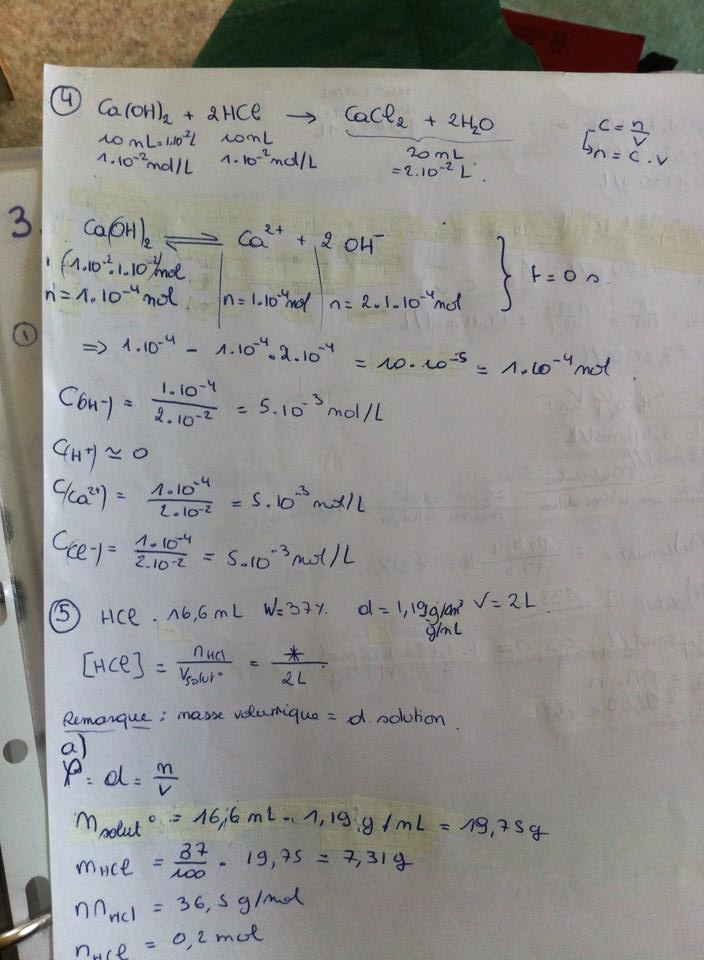 ④ Ca(OH)₂ + 2HCl → CaCl₂ + 2H₂O
C = n/V
↳ n = C . V
10 mL = 1.10⁻² L 10 mL 20 mL
1.10⁻² mol/L 1.10⁻² mol/L = 2.10⁻² L.
3.
Ca(OH)₂ ⇌ Ca²⁺ + 2 OH⁻
(1.10⁻².1.10⁻²) mol
n = 1.10⁻⁴ mol | n = 1.10⁻⁴ mol | n = 2.1.10⁻⁴ mol } t = 0 s.
①
⇒ 1.10⁻⁴ - 1.10⁻⁴.2.10⁻⁴ = 10.10⁻⁵ = 1.10⁻⁴ mol
C(OH⁻) = 1.10⁻⁴/2.10⁻² = 5.10⁻³ mol/L
C(H⁺) ≃ 0
C(Ca²⁺) = 1.10⁻⁴/2.10⁻² = 5.10⁻³ mol/L
C(Cl⁻) = 1.10⁻⁴/2.10⁻² = 5.10⁻³ mol/L
⑤ HCl . 16,6 mL W = 37% d = 1,19 g/cm³ V = 2L.
g/mL
[HCl] = nHCl/Vsolut° = */2L
Remarque : masse volumique = d solution.
a)
ρ = d = m/v
msolut° = 16,6 mL . 1,19 g/mL = 19,75 g
mHCl = 37/100 . 19,75 = 7,31 g
MMHCl = 36,5 g/mol
nHCl = 0,2 mol